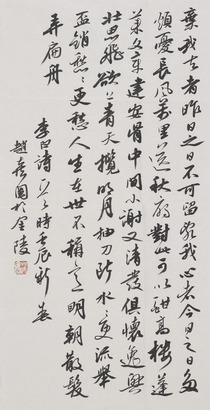 棄我去者昨日之日不可留亂我心者今日之日多
煩憂長風萬里送秋雁對此可以酣高樓蓬
萊文章建安骨中間小謝又清發俱懷逸興
壯思飛欲上青天攬明月抽刀斷水々更流舉
盃銷愁々更愁人生在世不稱意明朝散髮
弄扁舟
李白詩 時壬辰新春
趙 於金陵